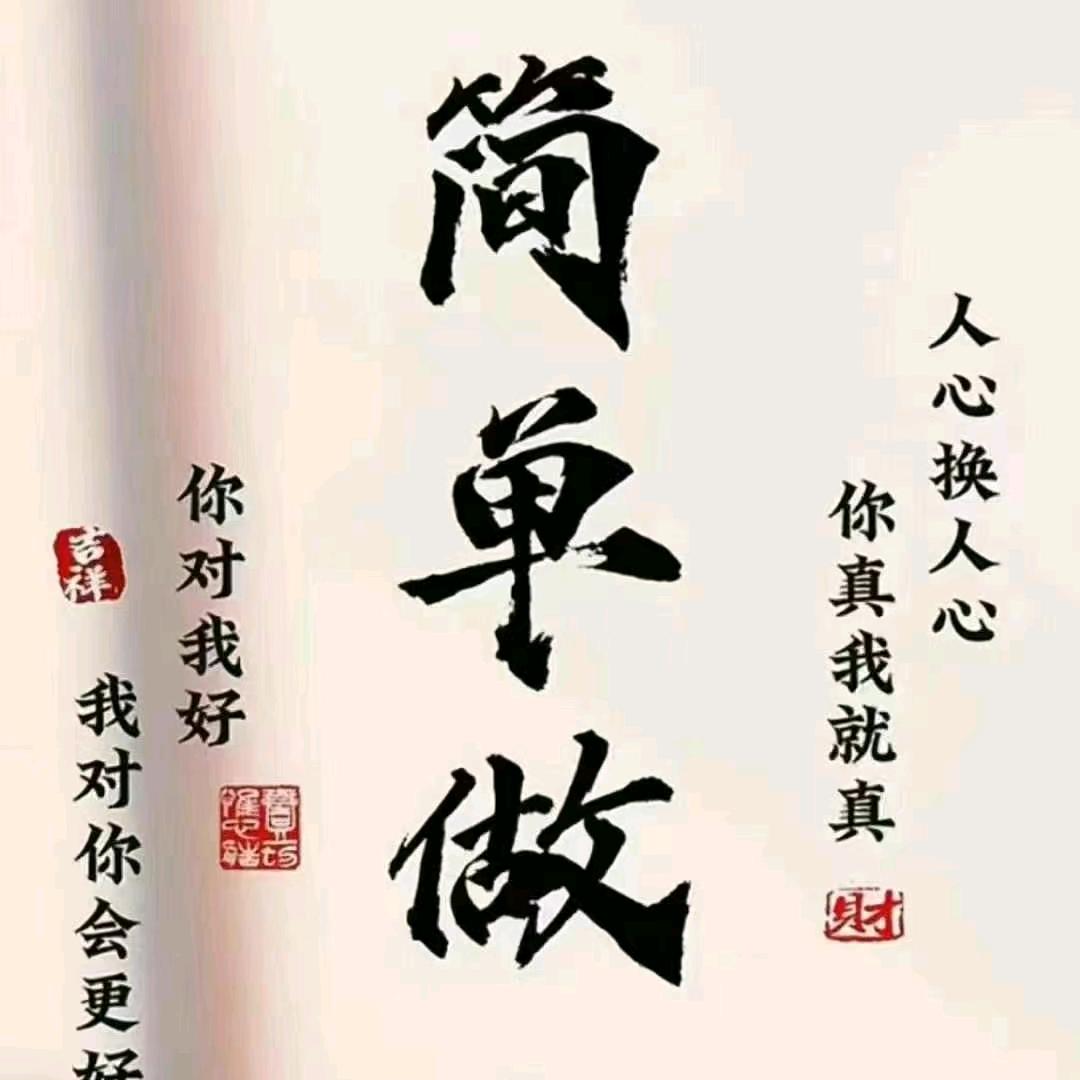 人心换人心
你真我就真
財
简单做
你对我好
吉祥
我对你会更好